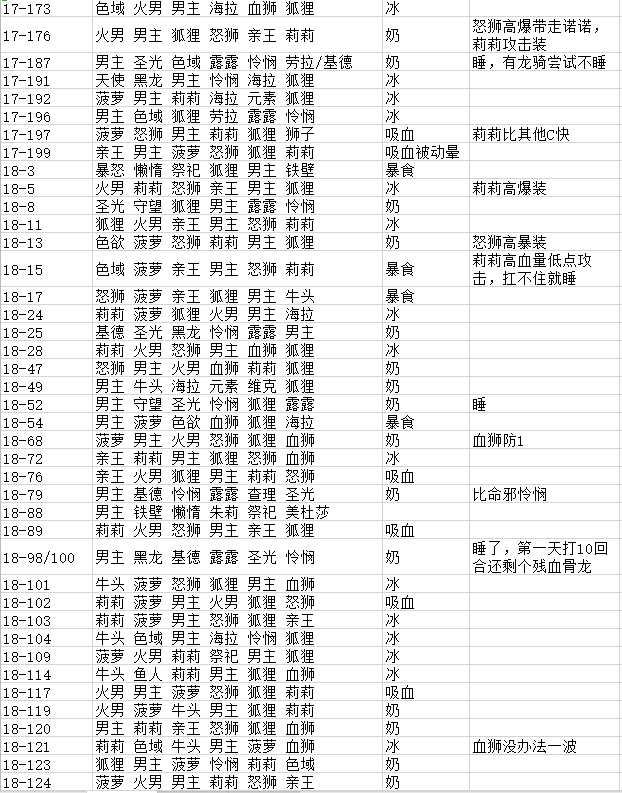 17-173 色域 火男 男主 海拉 血狮 狐狸 冰
17-176 火男 男主 狐狸 怒狮 亲王 莉莉 奶 怒狮高爆带走诺诺,
莉莉攻击装
17-187 男主 圣光 色域 露露 怜悯 劳拉/基德 奶 睡,有龙骑尝试不睡
17-191 天使 黑龙 男主 怜悯 海拉 狐狸 冰
17-192 菠萝 男主 莉莉 海拉 元素 狐狸 冰
17-196 男主 色域 狐狸 劳拉 露露 怜悯 冰
17-197 菠萝 怒狮 男主 莉莉 狐狸 狮子 吸血 莉莉比其他C快
17-199 亲王 男主 菠萝 怒狮 狐狸 莉莉 吸血被动晕
18-3 暴怒 懒惰 祭祀 狐狸 男主 铁壁 暴食
18-5 火男 莉莉 怒狮 亲王 男主 狐狸 冰 莉莉高爆装
18-8 圣光 守望 狐狸 男主 露露 怜悯 奶
18-11 狐狸 火男 亲王 男主 怒狮 莉莉 冰
18-13 色欲 菠萝 怒狮 莉莉 男主 狐狸 奶 怒狮高暴装
18-15 色域 菠萝 亲王 男主 怒狮 莉莉 暴食 莉莉高血量低点攻
击,扛不住就睡
18-17 怒狮 菠萝 亲王 狐狸 男主 牛头 暴食
18-24 莉莉 菠萝 狐狸 火男 男主 海拉 冰
18-25 基德 圣光 黑龙 怜悯 露露 男主 奶
18-28 莉莉 火男 怒狮 男主 血狮 狐狸 冰
18-47 怒狮 男主 火男 血狮 莉莉 狐狸 奶
18-49 男主 牛头 海拉 元素 维克 狐狸 奶
18-52 男主 守望 圣光 怜悯 狐狸 露露 奶 睡
18-54 男主 菠萝 色欲 血狮 狐狸 海拉 暴食
18-68 菠萝 男主 火男 怒狮 狐狸 血狮 奶 血狮防1
18-72 亲王 莉莉 男主 狐狸 怒狮 血狮 冰
18-76 亲王 火男 狐狸 男主 莉莉 怒狮 吸血
18-79 男主 基德 怜悯 露露 查理 圣光 奶 比命邪怜悯
18-88 男主 铁壁 懒惰 朱莉 祭祀 美杜莎
18-89 莉莉 火男 怒狮 男主 亲王 狐狸 吸血
18-98/100 男主 黑龙 基德 露露 圣光 怜悯 奶 睡了,第一天打10回
合还剩个残血骨龙
18-101 牛头 菠萝 怒狮 狐狸 男主 血狮 冰
18-102 莉莉 菠萝 男主 火男 狐狸 怒狮 吸血
18-103 莉莉 菠萝 男主 怒狮 狐狸 亲王 冰
18-104 牛头 色域 男主 海拉 怜悯 狐狸 冰
18-109 菠萝 火男 莉莉 祭祀 男主 狐狸 冰
18-114 牛头 鱼人 莉莉 男主 狐狸 血狮 冰
18-117 火男 男主 菠萝 怒狮 狐狸 莉莉 吸血
18-119 火男 菠萝 牛头 男主 狐狸 莉莉 奶
18-120 男主 莉莉 亲王 怒狮 狐狸 血狮 奶
18-121 莉莉 色域 牛头 男主 菠萝 血狮 冰 血狮没办法一波
18-123 狐狸 男主 菠萝 怜悯 莉莉 色域 奶
18-124 菠萝 火男 男主 莉莉 怒狮 亲王 奶